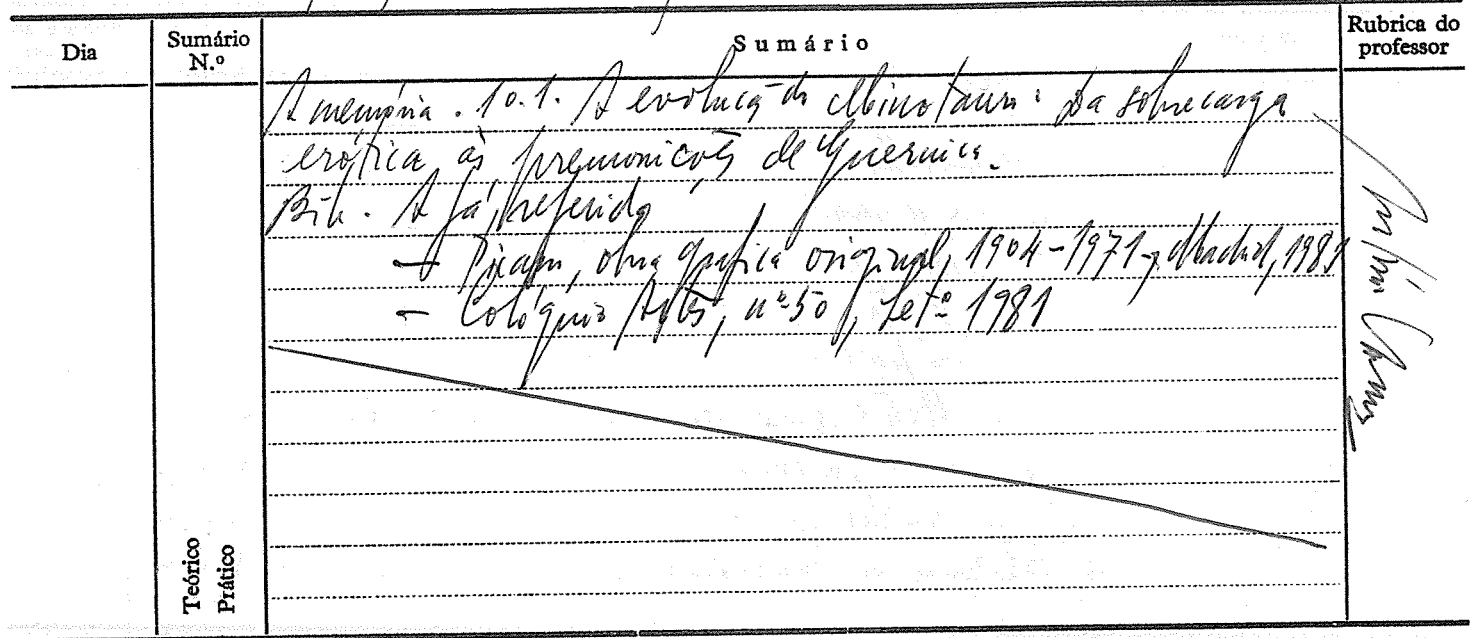 Dia
Sumário N.º
Sumário
Rubrica do professor
A memória. 10.1. A evolução do Minotauro: da sobrecarga
erótica às premonições de Guernica.
Bib. A já referida
- Picasso, obra gráfica original, 1904-1971, Madrid, 1981
- Colóquio Artes, nº 50, Setº 1981
Teórico
Prático